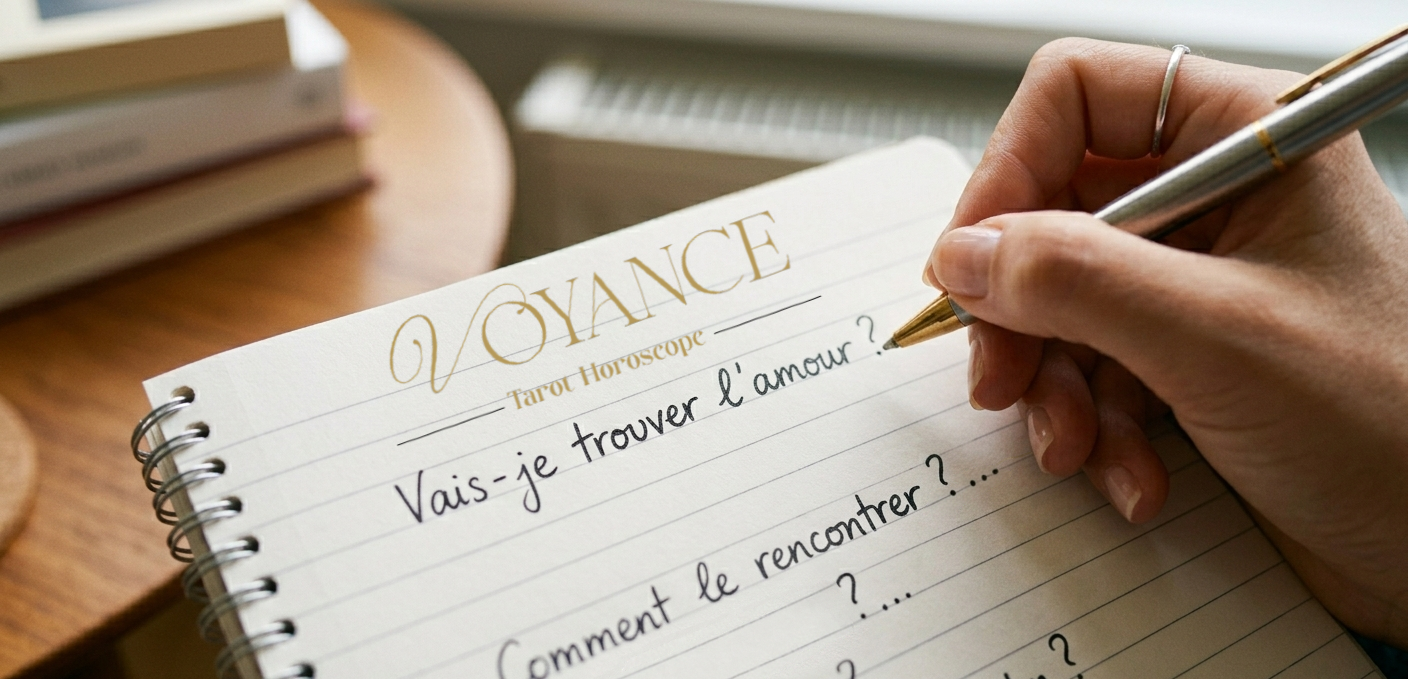 VOYANCE
Tarot Horoscope
Vais-je trouver l'amour ?
Comment le rencontrer ? ...
? ...
?
?